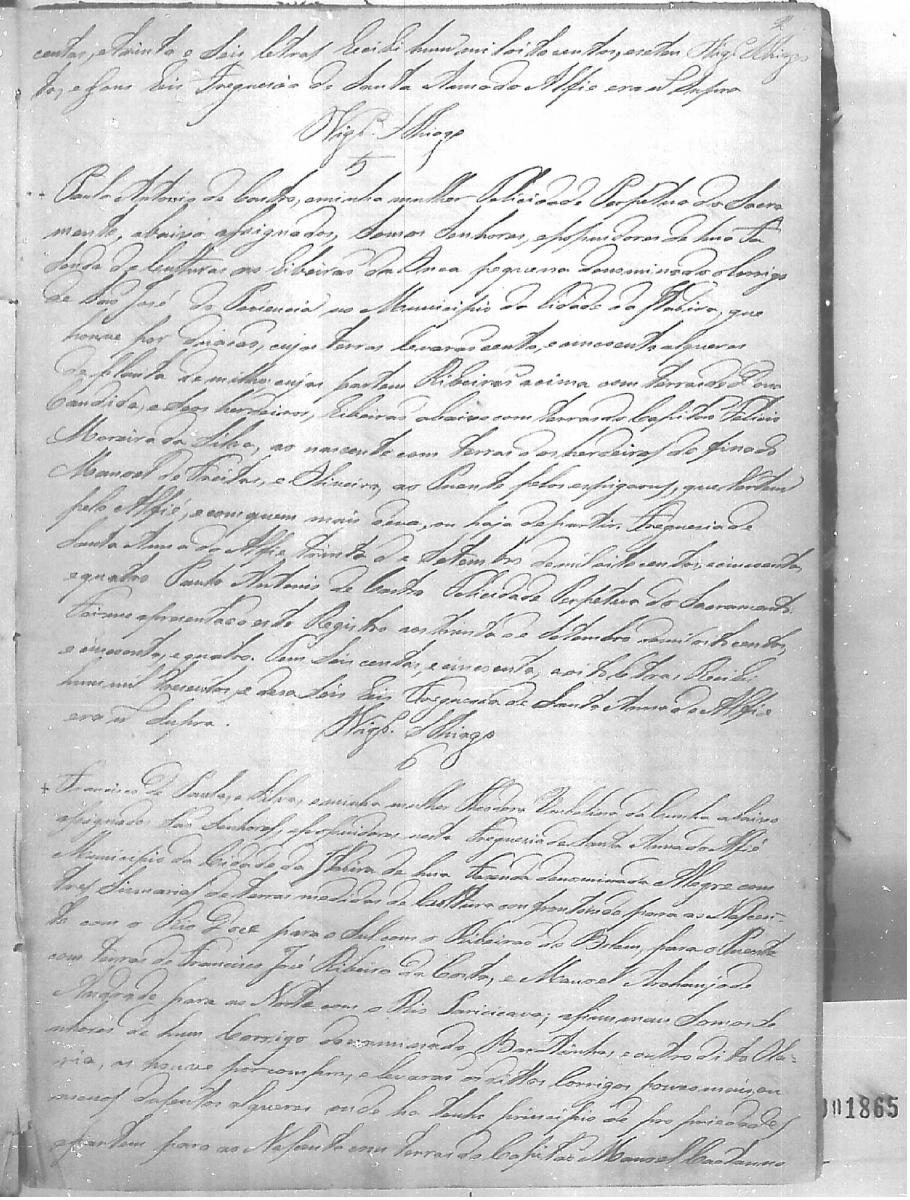 centos, e trinta e seis letras Recebi hum mil oito centos, e seten
ta, e hum reis Freguesia de Santa Anna do Alfié era ut supra
Vigr.º Thiago
5
Paulo Antonio de Castro, e minha mulher Felicidade Perpetua do Sacra
mento, abaixo assignados, somos Senhores, e possuidores de hua Fa
zenda de Culturas no Ribeirão da Onça pequena denominado o Corrigo
de São José da Paciencia no Municipio da Cidade da Itabira, que
houve por doiacão, cujas terras levarão cento, e cincoenta alqueres
de planta de milho cujas partem Ribeirão acima com terras de Dona
Candida, e seos herdeiros, Ribeirão abaixo com terras do Capitão Felicio
Moreira da Silva, ao nascente com terras dos herdeiros do finado
Manoel de Freitas, e Oliveira, ao Puente pelos espigoens, que vertem
pelo Alfié, e com quem mais deva, ou haja de partir. Freguesia de
Santa Anna do Alfié trinta de Setembro de mil oito centos, e cincoenta,
e quatro Paulo Antonio de Castro Felicidade Perpetua do Sacramento.
Foi me apresentado este Registro aos trinta de Setembro de mil oito centos,
e cincoenta, e quatro. Tem seis centas, e cincoenta, e oito letras Recebi
hum mil tresentos, e desa seis reis Freguesia de Santa Anna do Alfié
era ut supra.
Vigr.º Thiago
6
Francisco de Paula, e Silva, e minha mulher Theodora da Cunha abaixo
assignados são Senhores, e possuidores nesta Freguesia de Santa Anna do Alfié
Municipio da Cidade da Itabira de hua Fazenda denominada Alegre com
tres Sismarias de terras medidas de Cultura confrontando para ao Nascen-
te com o Rio Doce para o Sul com o Ribeirão do Belem, para o Puente
com terras de Francisco José Ribeiro da Costa, e Manoel Archanjo de
Andrade para ao Norte com o Rio Percicava; assim mais somos Se
nhores de hum Corrigo denominado e outro dito Ola-
ria, os houve por compra, e levarão os dittos Corrigos pouco mais, ou
menos dusentos alqueres onde ha tenho principio de propriedades
e partem para ao Nascente com terras do Capitão Manoel Caetanno
001865